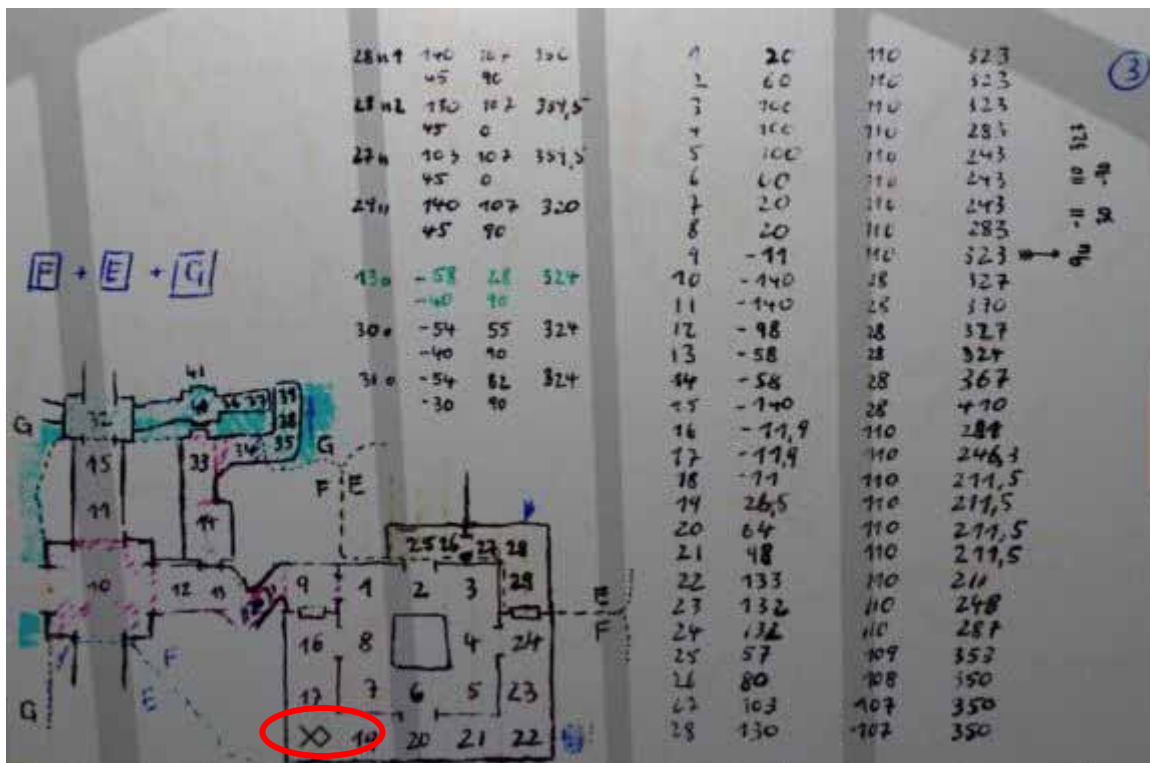 28n1 140 107
45 90
28n2 130 107 354,5
45 0
27n 103 107 354,5
45 0
140 107 320
45 90
130 -58 28 324
-40 90
300 -54 55 324
-40 90
310 -54 82 324
-30 90
F + E + G
1 20 110 323
2 60 110 323
3 100 110 323
4 100 110 283
5 100 110 243
6 60 110 243
7 20 110 243
8 20 110 283
9 -11 110 323
10 -140 28 327
11 -140 28 370
12 -98 28 327
13 -58 28 324
14 -58 28 367
15 -140 28 410
16 -11,9 110
17 -11,9 110 246,3
18 -11 110 211,5
19 26,5 110 211,5
20 64 110 211,5
21 98 110 211,5
22 133 110 211
23 132 110 248
24 132 110 287
25 57 109 353
26 80 108 350
27 103 107 350
28 130 107 350
3
41
32 40 36 37 39
G 28
15 33 34 35 G
11 14 F E
25 26 27 28
10 12 13 9 1 2 3 29
E
F
16 8 4 24
F
E 17 7 6 5 23
G
19 20 21 22